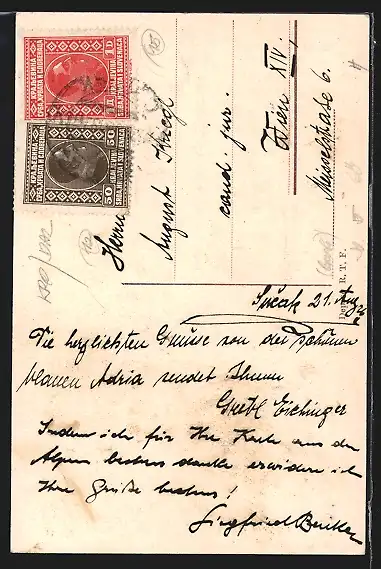 КРАЉЕВИНА
СРБА, ХРВАТА И СЛОВЕНАЦА
1 Д 1 D
KRALJEVINA
SRBA, HRVATA I SLOVENACA
КРАЉЕВИНА
СРБА, ХРВАТА И СЛОВЕНАЦА
50 50
KRALJEVINA
SRBA, HRVATA I SLOVENACA
Herrn
August
cand. jur.
Wien XIV.
Meiselstraße 6.
R. T. F.
21. Aug 26
Die herzlichsten Grüsse von der schönen
blauen Adria sendet Ihnen
Gretl Eichinger
Indem ich für Ihre Karte aus den
Alpen bestens danke erwidere ich
Ihre Grüße bestens!
Siegfried